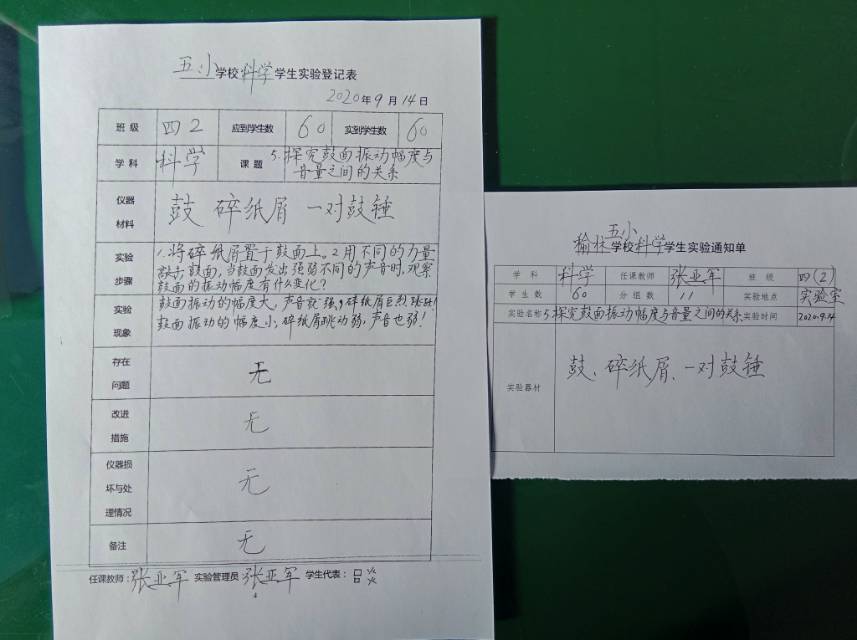 五小学校科学学生实验登记表
2020年9月14日
班级 四2 应到学生数 60 实到学生数 60
学科 科学 课题 5.探究鼓面振动幅度与
音量之间的关系
仪器
材料
鼓 碎纸屑 一对鼓锤
实验
步骤
1.将碎纸屑置于鼓面上。2用不同的力量
敲击鼓面,当鼓面发出强弱不同的声音时,观察
鼓面的振动幅度有什么变化?
实验
现象
鼓面振动的幅度大,声音就强,碎纸屑
鼓面振动的幅度小,碎纸屑跳动弱,声音也弱!
存在
问题
无
改进
措施
无
仪器损
坏与处
理情况
无
备注 无
任课教师:张亚军 实验管理员 张亚军 学生代表:
五小
榆林学校科学学生实验通知单
学科 科学 任课教师 张亚军 班级 四(2)
学生数 60 分组数 11 实验地点 实验室
实验名称 5.探究鼓面振动幅度与音量之间的关系 实验时间 2020.9.14
实验器材
鼓、碎纸屑、一对鼓锤